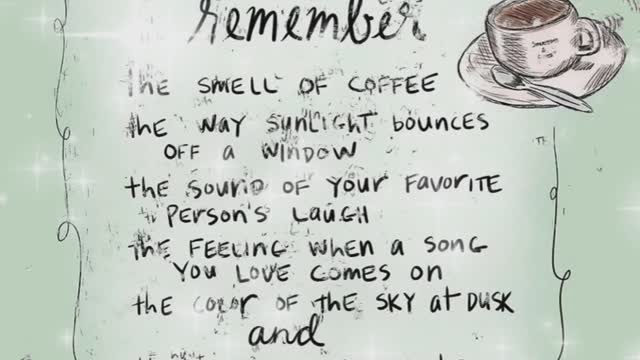 remember
the SMELL OF COFFEE
the WAY SUNLIGHT BOUNCES
OFF A WINDOW
the SOUND OF YOUR FAVORITE
PERSON'S LAUGH
the FEELING WHEN A SONG
YOU LOVE COMES ON
the COLOR OF THE SKY At DUSK
and